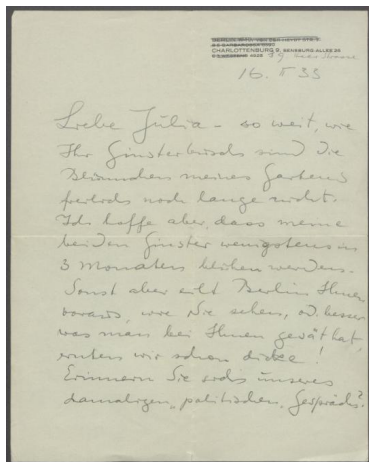 CHARLOTTENBURG 9, SENSBURG ALLEE 26
16. II 33
Liebe Julia – so weit, wie
Ihr Ginsterbusch sind die
Blümchen meines Gartens
freilich noch lange nicht.
Ich hoffe aber, dass meine
beiden Ginster wenigstens in
3 Monaten blühen werden.
Sonst aber eilt Berlin Ihnen
voraus, wie Sie sehen, od. besser
was man bei Ihnen gesät hat,
ernten wir schon dicke!
Erinnern Sie sich unseres
damaligen, politischen, Gesprächs?